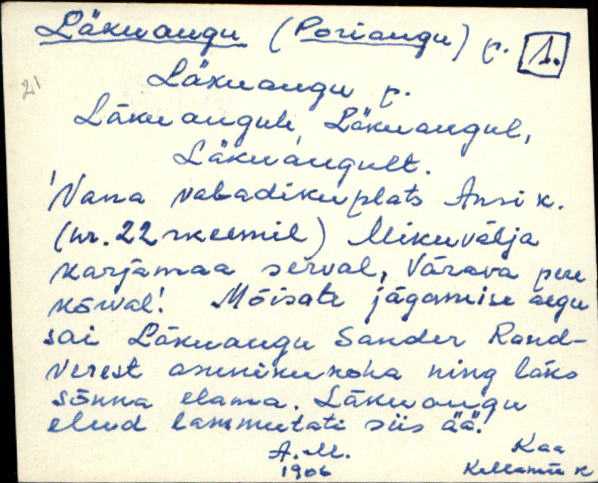 Läkuaugu (Poriaugu) p. 1.
21
Läkuaugu p.
Läkuaugule, Läkuaugul,
Läkuaugult.
'Vana vabadikuplats Ansi k.
(nr. 22 skeemil) Mikuvälja
karjamaa serval, Värava pere
kõrval! Mõisate jägamise aegu
sai Läkuaugu Sander Rand-
verest asunikukoha ning läks
sõnna elama. Läkuaugu
elud lammutati siis ää.'
A.M. Kaa
1906 Kellamäe k